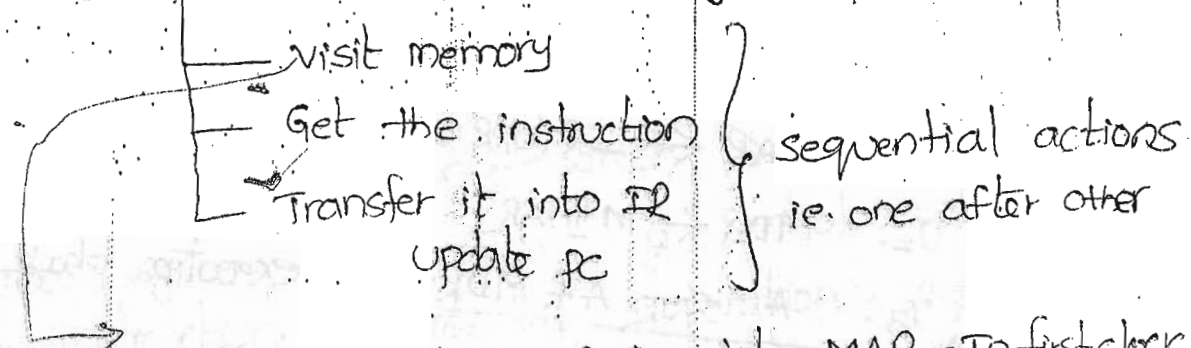 visit memory
Get the instruction
Transfer it into IR
update PC
sequential actions
ie. one after other
MAR